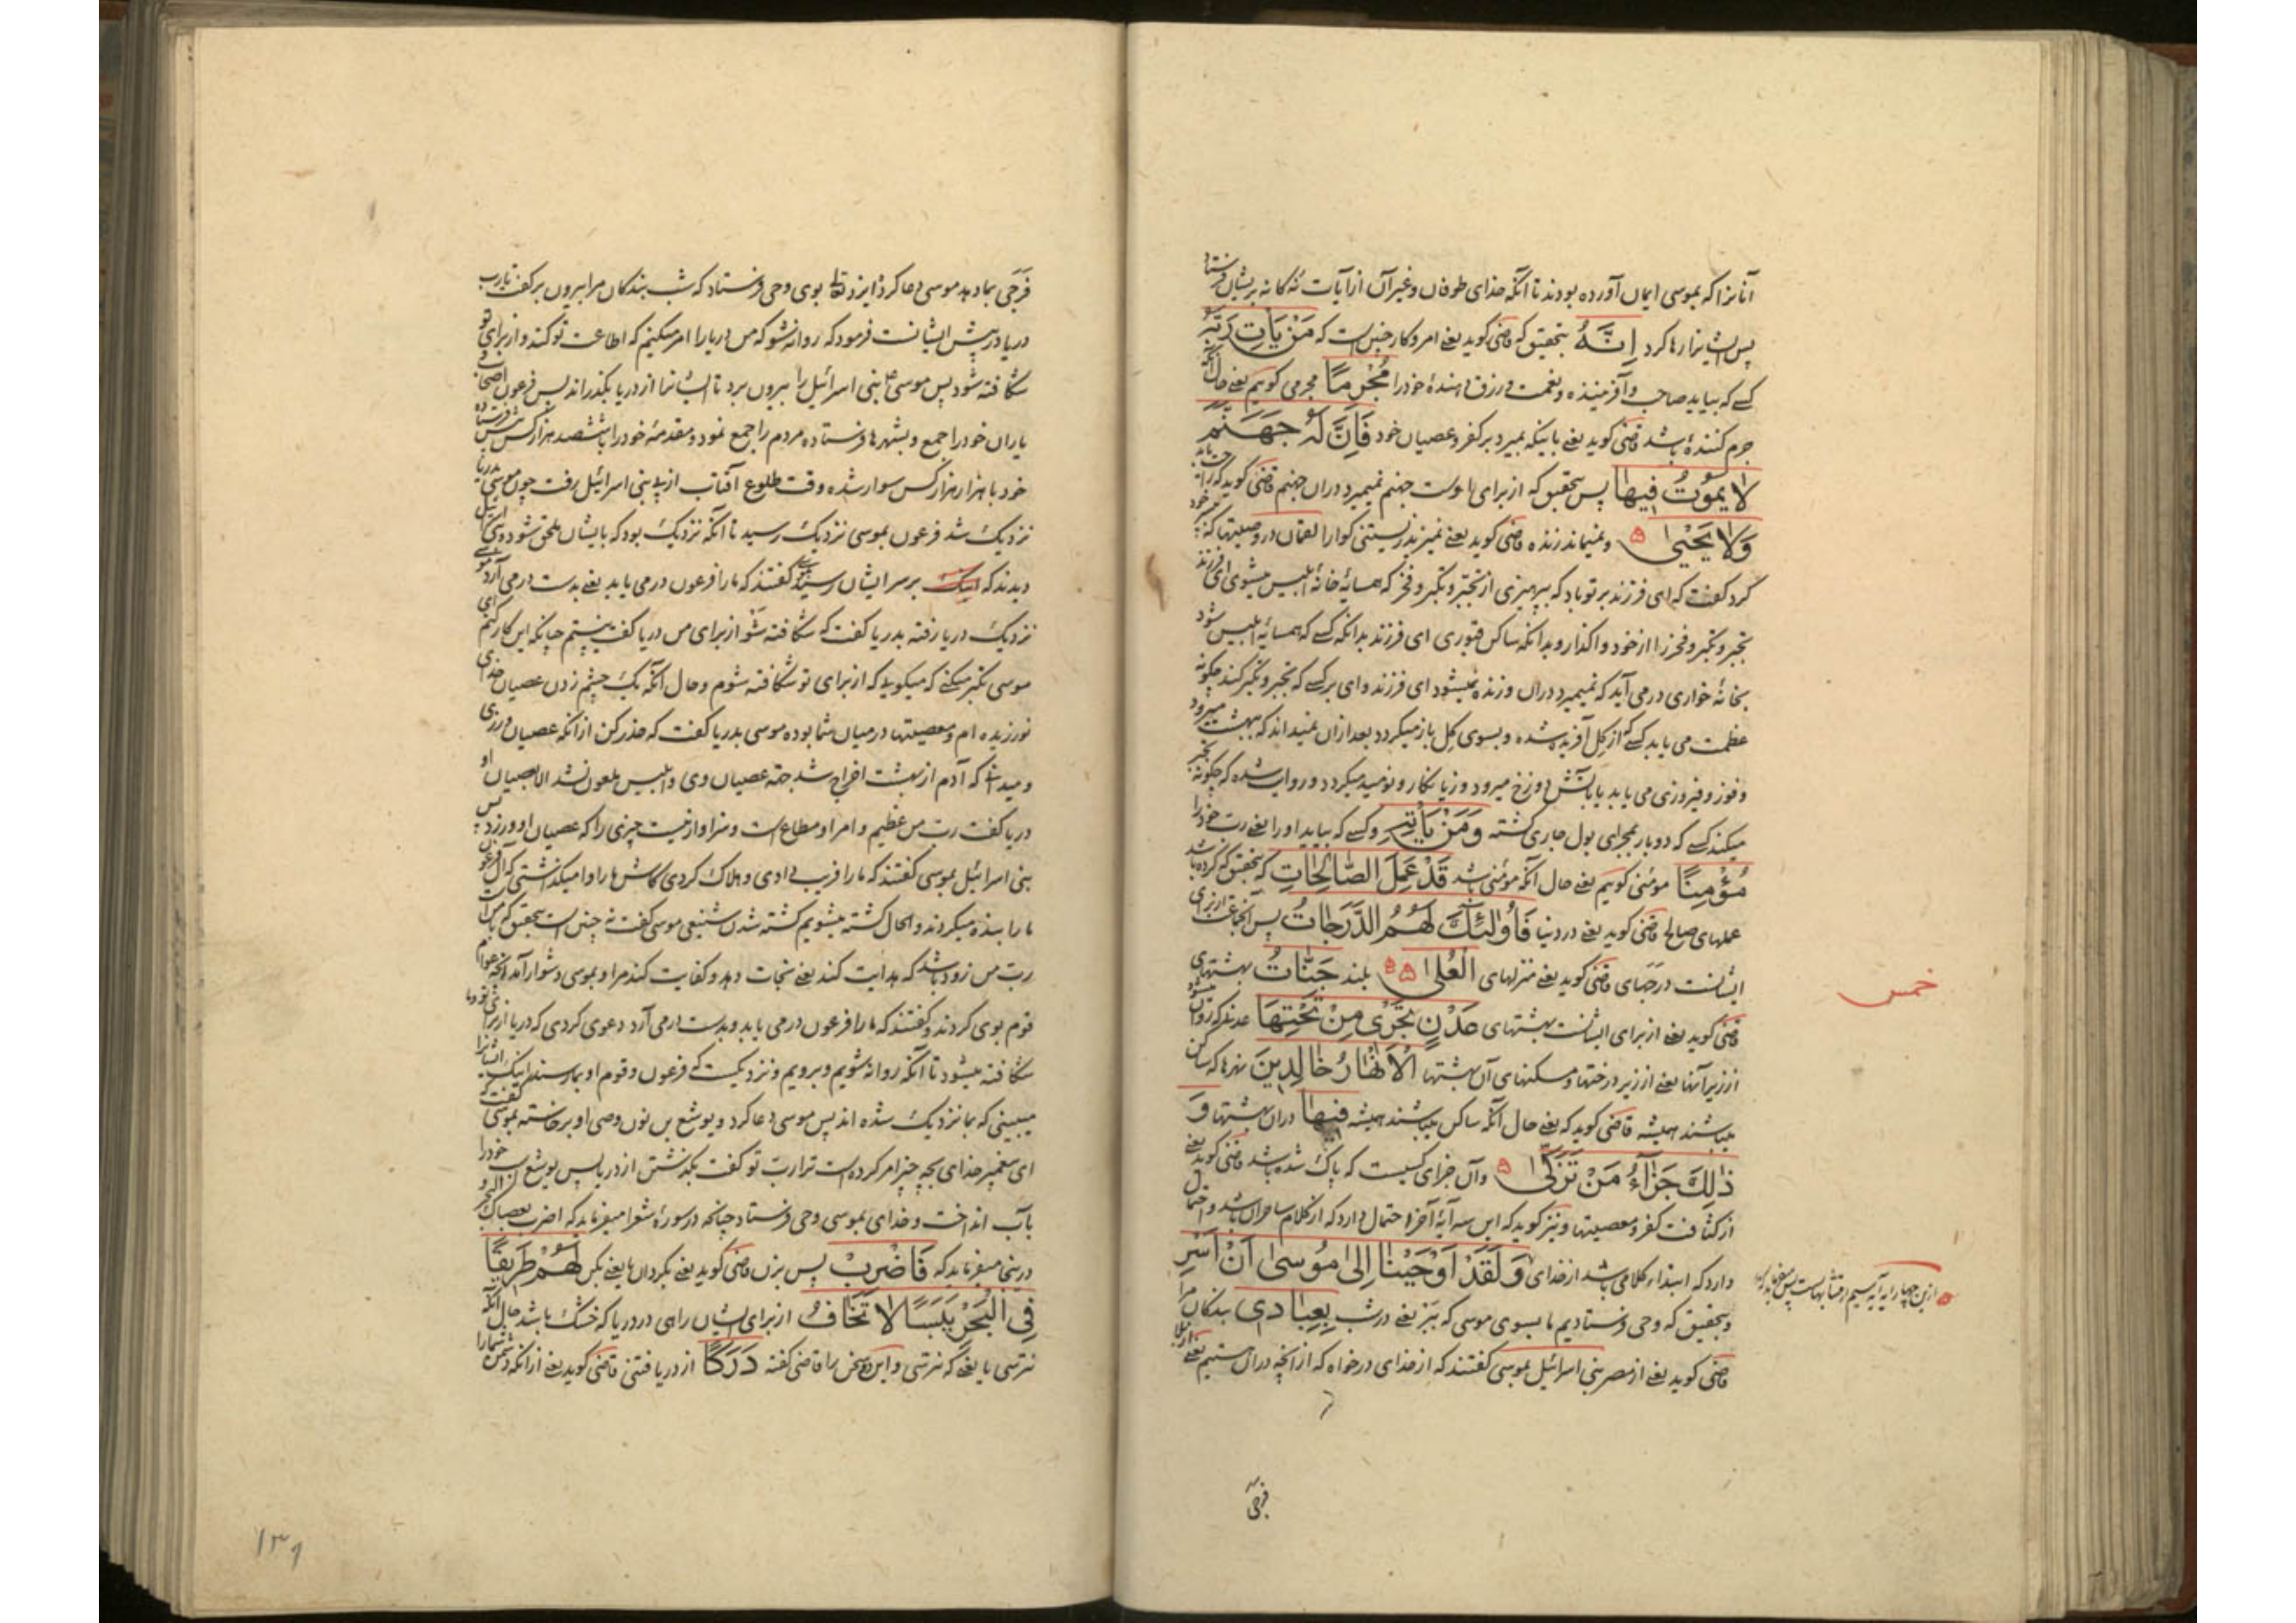 آنانرا که بموسی ایمان آورده بودند تا آنکه خدای طوفان و غیر آن از آیات نه کانه بریشان فرستاد
پس ایشانرا رها کرد اِنَّهُ بتحقیق که قاضی کوید یعنے امر و کار چنین است که مَنْ یَأْتِ رَبَّهُ
کسے که بیاید صاحب و آفریننده و نعمت و رزق دهندهٔ خود را مُجْرِمًا مجرمی کوییم یعنے حال آنکه
جرم کنندهٔ باشد قاضی کوید یعنے باینکه بمیرد بر کفر و عصیان خود فَاِنَّ لَهُ جَهَنَّمَ
لَا یَمُوتُ فِیهَا پس بتحقیق که از برای اوست جهنم نمیمیرد دران جهنم قاضی کوید که
وَلَا یَحْیٰی و نمیماند زنده قاضی کوید یعنے نمیزید زیستنی کوارا لقمان در وصیتها که
کرد کفت که ای فرزند بر تو باد که بپرهیزی از تجبّر و تکبّر و فخر که همسایهٔ خانهٔ ابلیس میشوی ای فرزند
تجبر و تکبر و فخر را از خود واکذار و بدانکه ساکن قبوری ای فرزند بدانکه کسے که همسایهٔ ابلیس شود
بخانهٔ خواری درمی آید که نمیمیرد دران و زنده نمیشود ای فرزند وای بر کسے که تجبر و تکبر کند چکونه
عظمت می یابد کسے که از کِل آفریده شده و بسوی کِل باز میکردد بعد ازان نمیداند که ببهشت میرود
و فوز و فیروزی می یابد یا بآتش دوزخ میرود و زیانکار و نومید میکردد و روایت شده که چکونه تجبر
میکند کسے که دوبار بمجرای بول جاری کشته وَمَنْ یَأْتِهِ و کسے که بیاید او را یعنے رب خود را
مُؤْمِنًا مؤمنی کوییم یعنے حال آنکه مؤمنی باشد قَدْ عَمِلَ الصَّالِحَاتِ که بتحقیق که کرده باشد
عملهای صالح قاضی کوید یعنے در دنیا فَاُولٰئِكَ لَهُمُ الدَّرَجَاتُ پس آنجماعت از برای
ایشانست درجهای قاضی کوید یعنے منزلهای الْعُلٰی بلند جَنَّاتُ بهشتهای
قاضی کوید یعنے از برای ایشانست بهشتهای عَدْنٍ تَجْرِی مِنْ تَحْتِهَا عدنی که روان میشود
از زیر آنها یعنے از زیر درختها و مسکنهای آن بهشتها الْاَنْهَارُ خَالِدِینَ نهرها که ساکن
میباشند همیشه قاضی کوید که یعنے حال آنکه ساکن میباشند همیشه فِیهَا دران بهشتها وَ
ذٰلِكَ جَزَآءُ مَنْ تَزَکّٰی و آن جزای کسیست که پاک شده باشد قاضی کوید یعنے
از کثافت کفر و معصیتها و نیز کوید که این سه آیهٔ آخر احتمال دارد که از کلام ساحران باشد و احتمال
دارد که ابتداء کلامی باشد از خدای وَلَقَدْ اَوْحَیْنَا اِلٰی مُوسٰی اَنْ اَسْرِ
و بتحقیق که وحی فرستادیم ما بسوی موسی که ببر یعنے در شب بِعِبَادِی بندکان مرا
قاضی کوید یعنے از مصر بنی اسرائیل بموسی کفتند که از خدای درخواه که از آنچه دران هستیم یعنے
فرجی
خمس
فَرَجی بما دهد موسی دعا کرد ایزد تعالی بوی وحی فرستاد که شب بندکان مرا بیرون بر کفت یا رب
دریا در پیش ایشانست فرمود که روانه شو که من دریا را امر میکنیم که اطاعت تو کند و از برای تو
شکافته شود پس موسی بنی اسرائیل را بیرون برد تا ایشانرا از دریا بکذراند پس فرعون
یاران خود را جمع و بشهرها فرستاده مردم را جمع نمود و مقدمهٔ خود را با ششصد هزار کس فرستاده
خود با هزار هزار کس سوار شده وقت طلوع آفتاب از پے بنی اسرائیل رفت چون موسی بدریا
نزدیک شد فرعون بموسی نزدیک رسید تا آنکه نزدیک بود که بایشان ملحق شود
دیدند که اینک بر سر ایشان رسید کفتند که ما را فرعون درمی یابد یعنے بدست درمی آرد موسے
نزدیک دریا رفته بدریا کفت که شکافته شو از برای من دریا کفت
موسی تکبر میکنے که میکویی که از برای تو شکافته شوم و حال آنکه یک چشم زدن عصیان خدای
نورزیده ام و معصیتها در میان شما بوده موسی بدریا کفت که حذر کن از آنکه عصیان ورزی
و میدانے که آدم از بهشت اخراج شد بجهة عصیان وی و ابلیس ملعون نشد الا بعصیان او
دریا کفت رب من عظیم و امر او مطاع است و سزاوار نیست چیزی را که عصیان او ورزد پس
بنی اسرائیل بموسی کفتند که ما را فریب دادی و هلاک کردی کاش ما را وا میکذاشتی که آل فرعون
ما را بنده میکردند و الحال کشته میشویم کشته شدن شنیعی موسی کفت نه چنین است بتحقیق که با من است
رب من زود باشد که هدایت کند یعنے نجات دهد و کفایت کند مرا و بموسی دشوار آمد آنچه عوام
قوم بوی کردند و کفتند که ما را فرعون درمی یابد و بدست درمی آرد دعوی کردی که دریا از برای تو و ما
شکافته میشود تا آنکه روانه شویم و برویم و نزدیکست که فرعون و قوم او بما رسند اینک ایشانرا
میبینی که بما نزدیک شده اند پس موسی دعا کرد و یوشع بن نون وصی او برخاسته بموسی کفت که
ای پیغمبر خدای بچه چیز امر کرده است ترا رب تو کفت بکذشتن از دریا پس یوشع اسب خود را
بآب انداخت و خدای بموسی وحی فرستاد چنانچه در سورهٔ شعرا میفرماید که اضرب بعصاک البحر و
درینجا میفرماید که فَاضْرِبْ پس بزن قاضی کوید یعنے بکردان یا یعنے بکن لَهُمْ طَرِیقًا
فِی الْبَحْرِ یَبَسًا لَا تَخَافُ از برای ایشان راهی در دریا که خشک باشد حال آنکه
نترسی یا یعنے که نترسی و این دو سخن را قاضی کفته دَرَکًا از دریافتنی قاضی کوید یعنے از آنکه دشمن شما را
۱۳۹